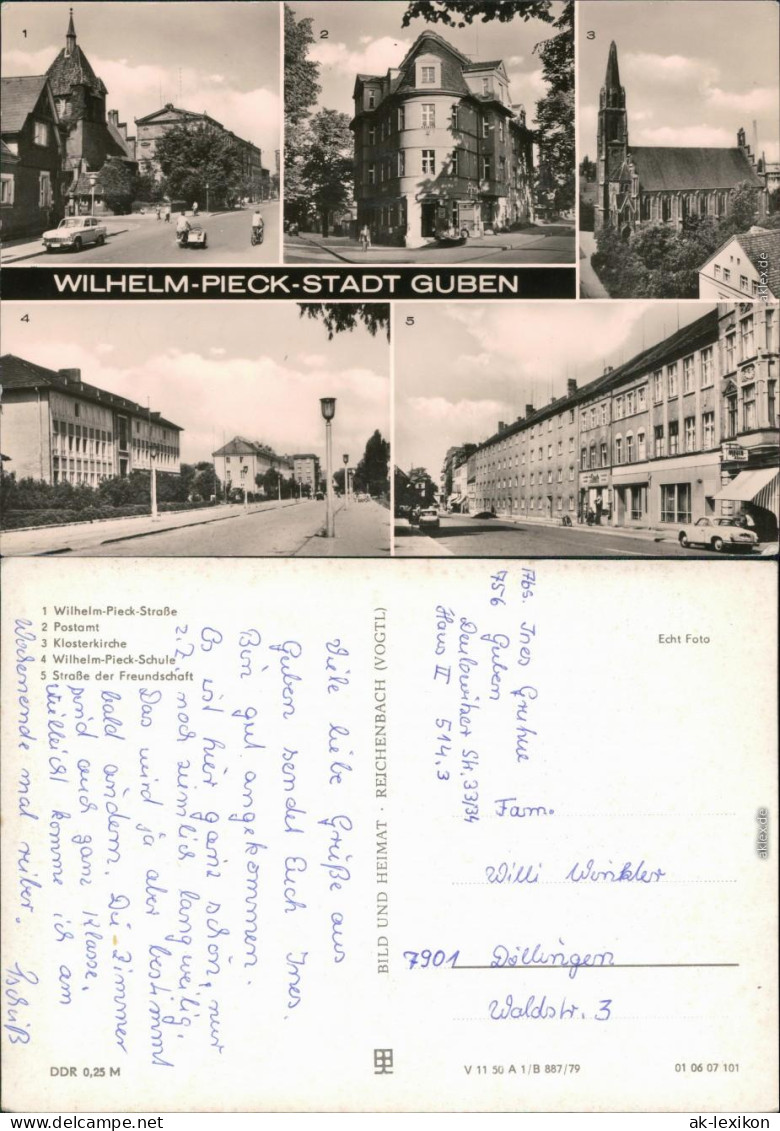 1
2
3
WILHELM-PIECK-STADT GUBEN
4
5
1 Wilhelm-Pieck-Straße
2 Postamt
3 Klosterkirche
4 Wilhelm-Pieck-Schule
5 Straße der Freundschaft
Viele liebe Grüße aus
Guben sendet Euch Ines.
Bin gut angekommen.
Es ist hier ganz schön, nur
z.Z. noch ziemlich langweilig.
Das wird ja aber bestimmt
bald anders. Die Zimmer
sind auch ganz Klasse.
Vielleicht komme ich am
Wochenende mal rüber. Tschüß
BILD UND HEIMAT · REICHENBACH (VOGTL)
Abs. Ines
756 Guben
Str. 33/34
Haus II 514.3
Echt Foto
Fam.
Willi Winkler
7901 Döllingen
Waldstr. 3
DDR 0,25 M
V 11 50 A 1/B 887/79
01 06 07 101
aklex.de
aklex.de
www.ak-lexikon.de